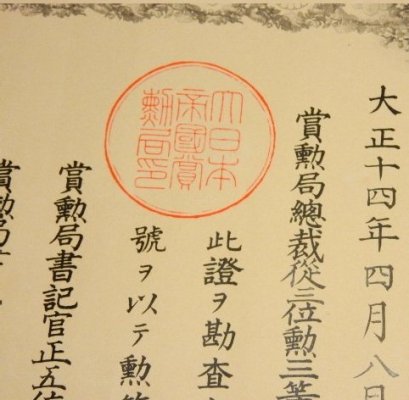 大正十四年四月八日
賞勲局總裁從三位勲三等
大日本
帝國賞
勲局印
此證ヲ勘査
號ヲ以テ勲
賞勲局書記官正五
賞勲局